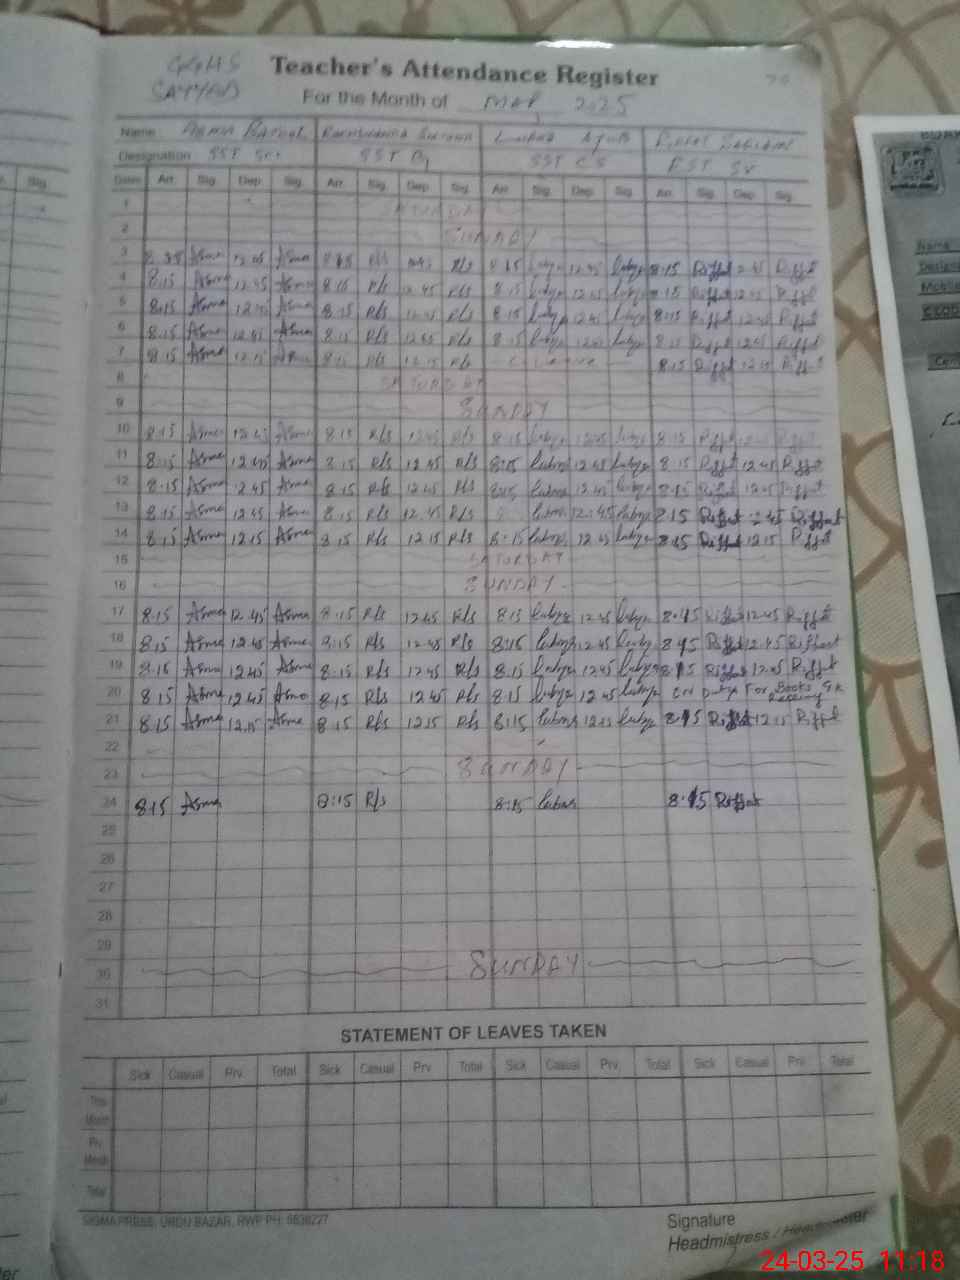 GGHS
SAYYAD
Teacher's Attendance Register
For the Month of Mar, 2025
Name Asma Batool Sultana Lubna Ayub Riffat
Designation SST Sci SST SST CS EST Sr
Date Arr. Sig. Dep. Sig. Arr. Sig. Dep. Sig. Arr. Sig. Dep. Sig. Arr. Sig. Dep. Sig.
1 SATURDAY
2 SUNDAY
3 Asma 12.45 Asma R/s R/s 12.45 8:15 Riffat 12.45 Riffat
4 8.15 Asma 12.45 Asma 8.15 R/s 12.45 R/s 8.15 Lubna 12.45 Lubna 8.15 Riffat 12.45 Riffat
5 8.15 Asma 12.45 Asma 8.15 R/s 12.45 R/s 8.15 Lubna 12.45 Lubna 8.15 Riffat 12.45 Riffat
6 8.15 Asma 12.45 Asma 8.15 R/s 12.45 R/s 8.15 Lubna 12.45 Lubna 8.15 Riffat 12.45 Riffat
7 8.15 Asma 12.15 Asma 8.15 R/s 12.15 R/s C. Leave 8.15 Riffat 12.15 Riffat
8 SATURDAY
9 SUNDAY
10 8.15 Asma 12.45 Asma 8.15 R/s 12.45 R/s 8.15 Lubna 12.45 Lubna 8.15 Riffat Riffat
11 8.15 Asma 12.45 Asma 8.15 R/s 12.45 R/s 8:15 Lubna 12.45 Lubna 8.15 Riffat 12.45 Riffat
12 8.15 Asma 12.45 Asma 8.15 R/s 12.45 R/s 8:15 Lubna 12.45 Lubna 8.15 Riffat 12.45 Riffat
13 8.15 Asma 12.45 Asma 8.15 R/s 12.45 R/s Lubna 12:45 Lubna 8.15 Riffat 12.45 Riffat
14 8.15 Asma 12.15 Asma 8.15 R/s 12.15 R/s 8:15 Lubna Lubna 8.15 Riffat 12.15 Riffat
15 SATURDAY
16 SUNDAY
17 8.15 Asma 12.45 Asma 8.15 R/s 12.45 R/s 8.15 Lubna 12.45 Lubna 8.15 Riffat 12.45 Riffat
18 8.15 Asma 12.45 Asma 8.15 R/s 12.45 R/s 8:15 Lubna 12.45 Lubna 8.15 Riffat 12.45 Riffat
19 8.15 Asma 12.45 Asma 8.15 R/s 12.45 R/s 8.15 Lubna 12.45 Lubna 8.15 Riffat 12.45 Riffat
20 8.15 Asma 12.45 Asma 8.15 R/s 12.45 R/s 8.15 Lubna 12.45 Lubna on Duty For Books
21 8.15 Asma 12.15 Asma 8.15 R/s 12.15 R/s 8:15 Lubna 12.15 Lubna 8.15 Riffat 12.15 Riffat
22
23 SUNDAY
24 8.15 Asma 8:15 R/s 8:15 Lubna 8.15 Riffat
25
26
27
28
29
30 SUNDAY
31
STATEMENT OF LEAVES TAKEN
Sick Casual Prv. Total Sick Casual Prv. Total Sick Casual Prv. Total Sick Casual Prv. Total
This Month
Prv. Month
Total
SIGMA PRESS, URDU BAZAR, RWP PH: 5536227
Signature
Headmistress / Headmaster
24-03-25 11:18